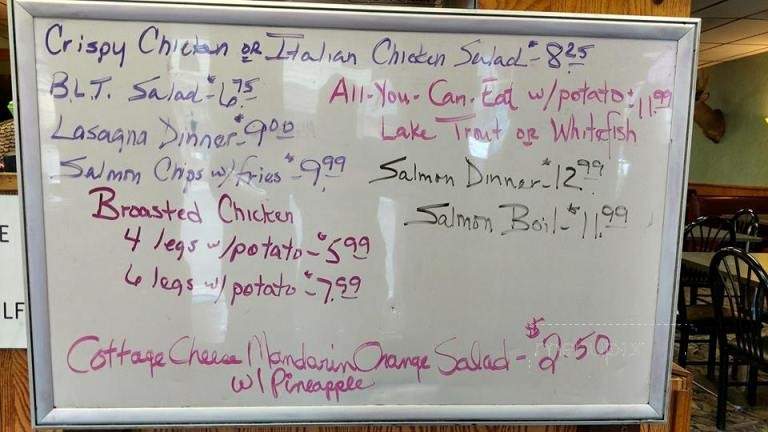 Crispy Chicken OR Italian Chicken Salad - $8.25
B.L.T. Salad - $6.75
All-You-Can-Eat w/potato - $11.99
Lake Trout OR Whitefish
Lasagna Dinner - $9.00
Salmon Chips w/fries - $9.99
Salmon Dinner - $12.99
Salmon Boil - $11.99
Broasted Chicken
4 legs w/potato - $5.99
6 legs w/potato - $7.99
Cottage Cheese Mandarin Orange Salad - $2.50
w/ Pineapple
E
LF